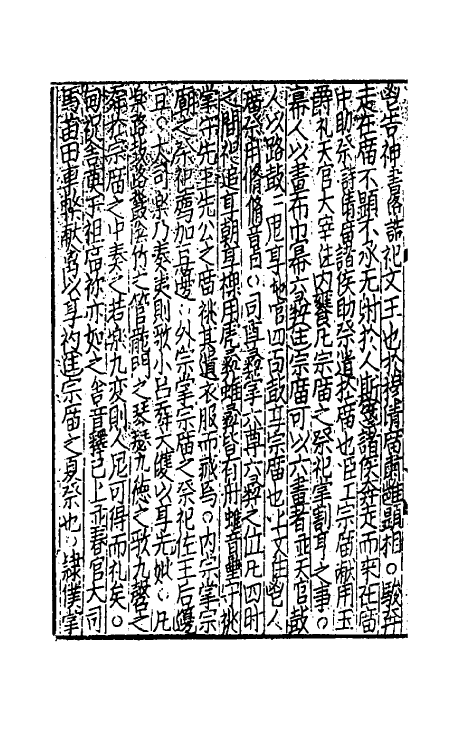 告神○書洛誥祀文王也於穆清廟肅雝顯相○駿奔
走在廟不顯不承无射於人斯諸侯奔走而來在廟
中助祭詩清廟諸侯助祭遺於廟也臣工宗廟献用玉
爵礼天官大宰注内饔凡宗廟之祭祀掌割享之事○
冪人以畫布巾冪六彝注宗廟可以六畫者並天官鼓
人以路鼓二鬼享地官四面鼓享宗廟也上文注鬯人
廟祭用脩脩音卣○司尊彝掌六尊六彝之位凡四時
之間祀追享朝享祼用虎彝蜼彝皆有舟蜼音壘守祧
掌守先王先公之廟祧其遺衣服而藏焉○内宗掌宗
廟之祭祀薦加豆籩○外宗掌宗廟之祭祀佐王后籩
豆○大司樂乃奏夷則歌小吕舞大濩以享先妣○凡
樂路鼓路鼗陰竹之管龍門之琴瑟九德之歌九磬之
舞於宗廟之中奏之若樂九变則人鬼可得而礼矣○
甸祝舍奠于祖廟祢亦如之舍音釋已上並春官大司
馬苗田車弊献禽以享礿注宗廟之夏祭也○隷僕掌